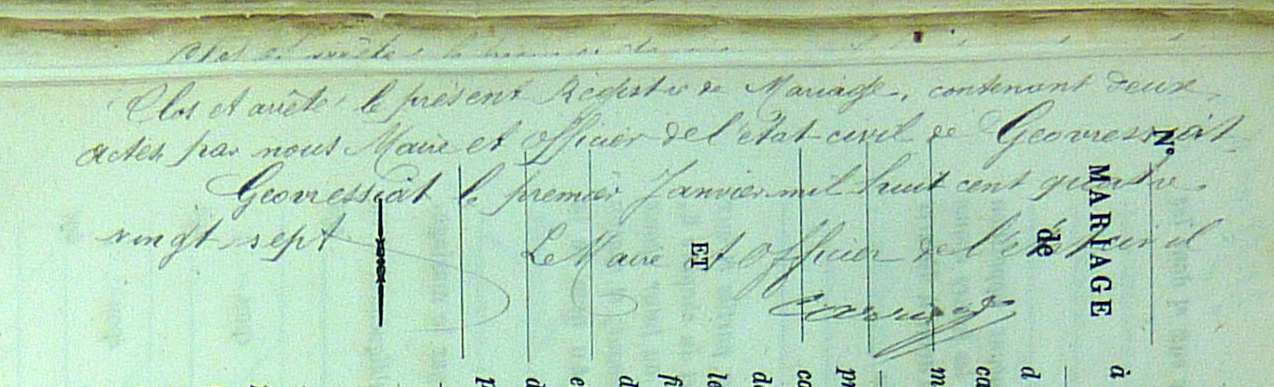 Clos et arrêté le présent Registre de Mariage, contenant deux
actes par nous Maire et officier de l'état civil de Geovressiat
Geovressiat le premier Janvier mil huit cent quatre
vingt sept
Le Maire et officier de l'état civil
N°
MARIAGE
de
ET
à